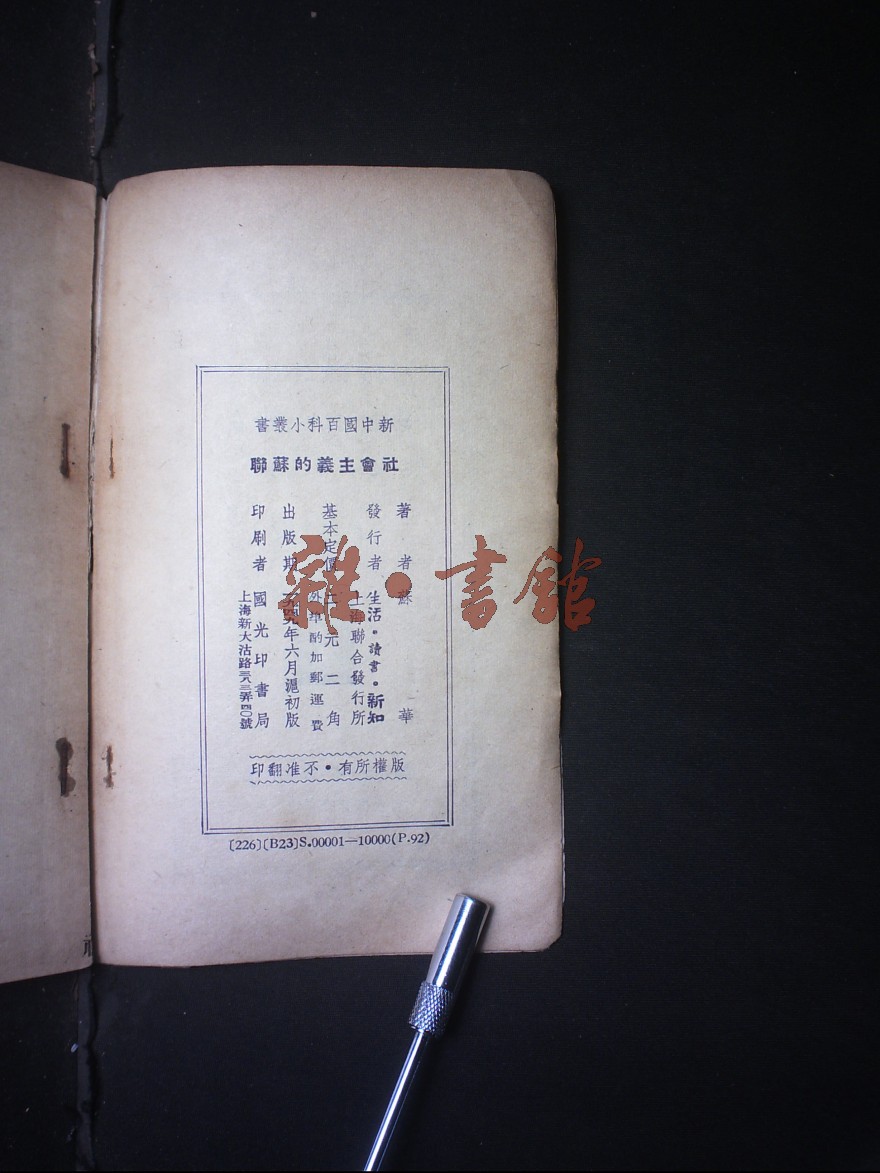 新中國百科小叢書
社會主義的蘇聯
著者 蘇華
發行者 生活·讀書·新知
上海聯合發行所
基本定價 元二角
外埠酌加郵運費
出版期 年六月滬初版
印刷者 國光印書局
上海新大沽路 號
版權所有·不准翻印
[226][B23]S.00001—10000(P.92)
雜·書館